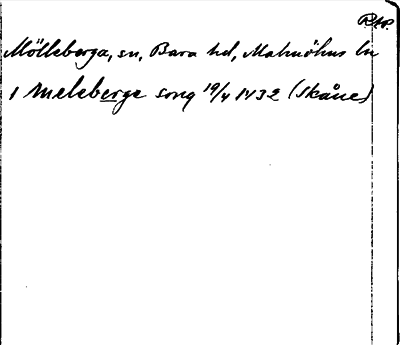 RAP.
Mölleberga, sn, Bara hd, Malmöhus ln
i Meleberge song 19/4 1432 (Skåne)